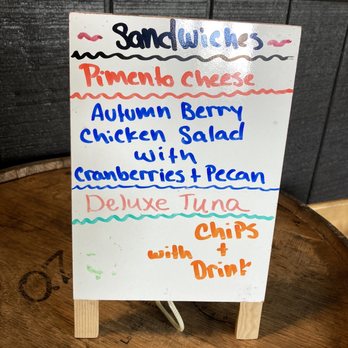 Sandwiches
Pimento Cheese
Autumn Berry
Chicken Salad
with
Cranberries + Pecan
Deluxe Tuna
Chips
with +
Drink